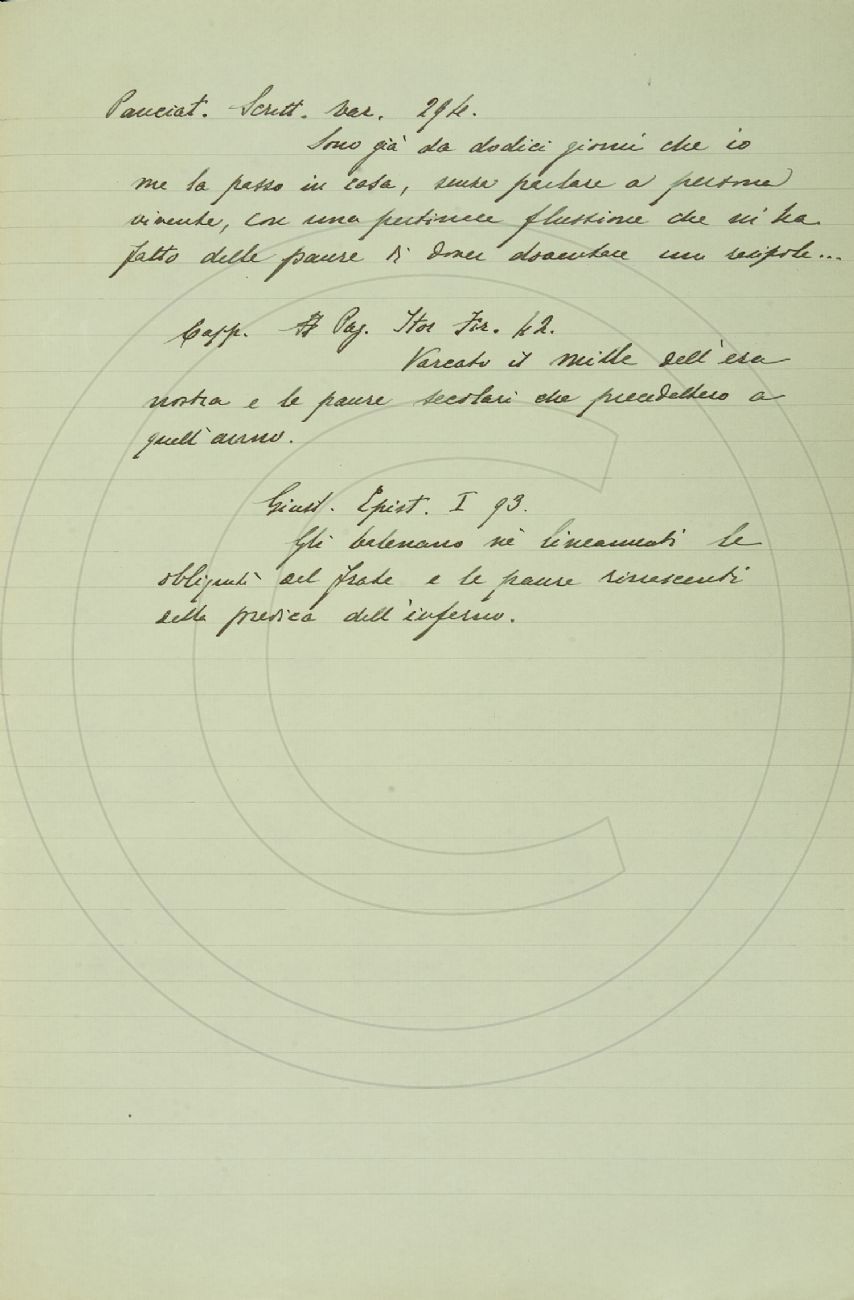 Panciat. Scritt. var. 294.
Sono già da dodici giorni che io
me la passo in casa, senza parlare a persona
vivente, con una pertinace flussione che m'ha
fatto delle paure di dover doventare un
Capp. Pag. Stor Fir. 42.
Varcato il mille dell'era
nostra e le paure secolari che precedettero a
quell'anno.
Giust. Epist. I 93.
Gli balenano ne' lineamenti le
obliquità del frate e le paure rinascenti
della predica dell'inferno.